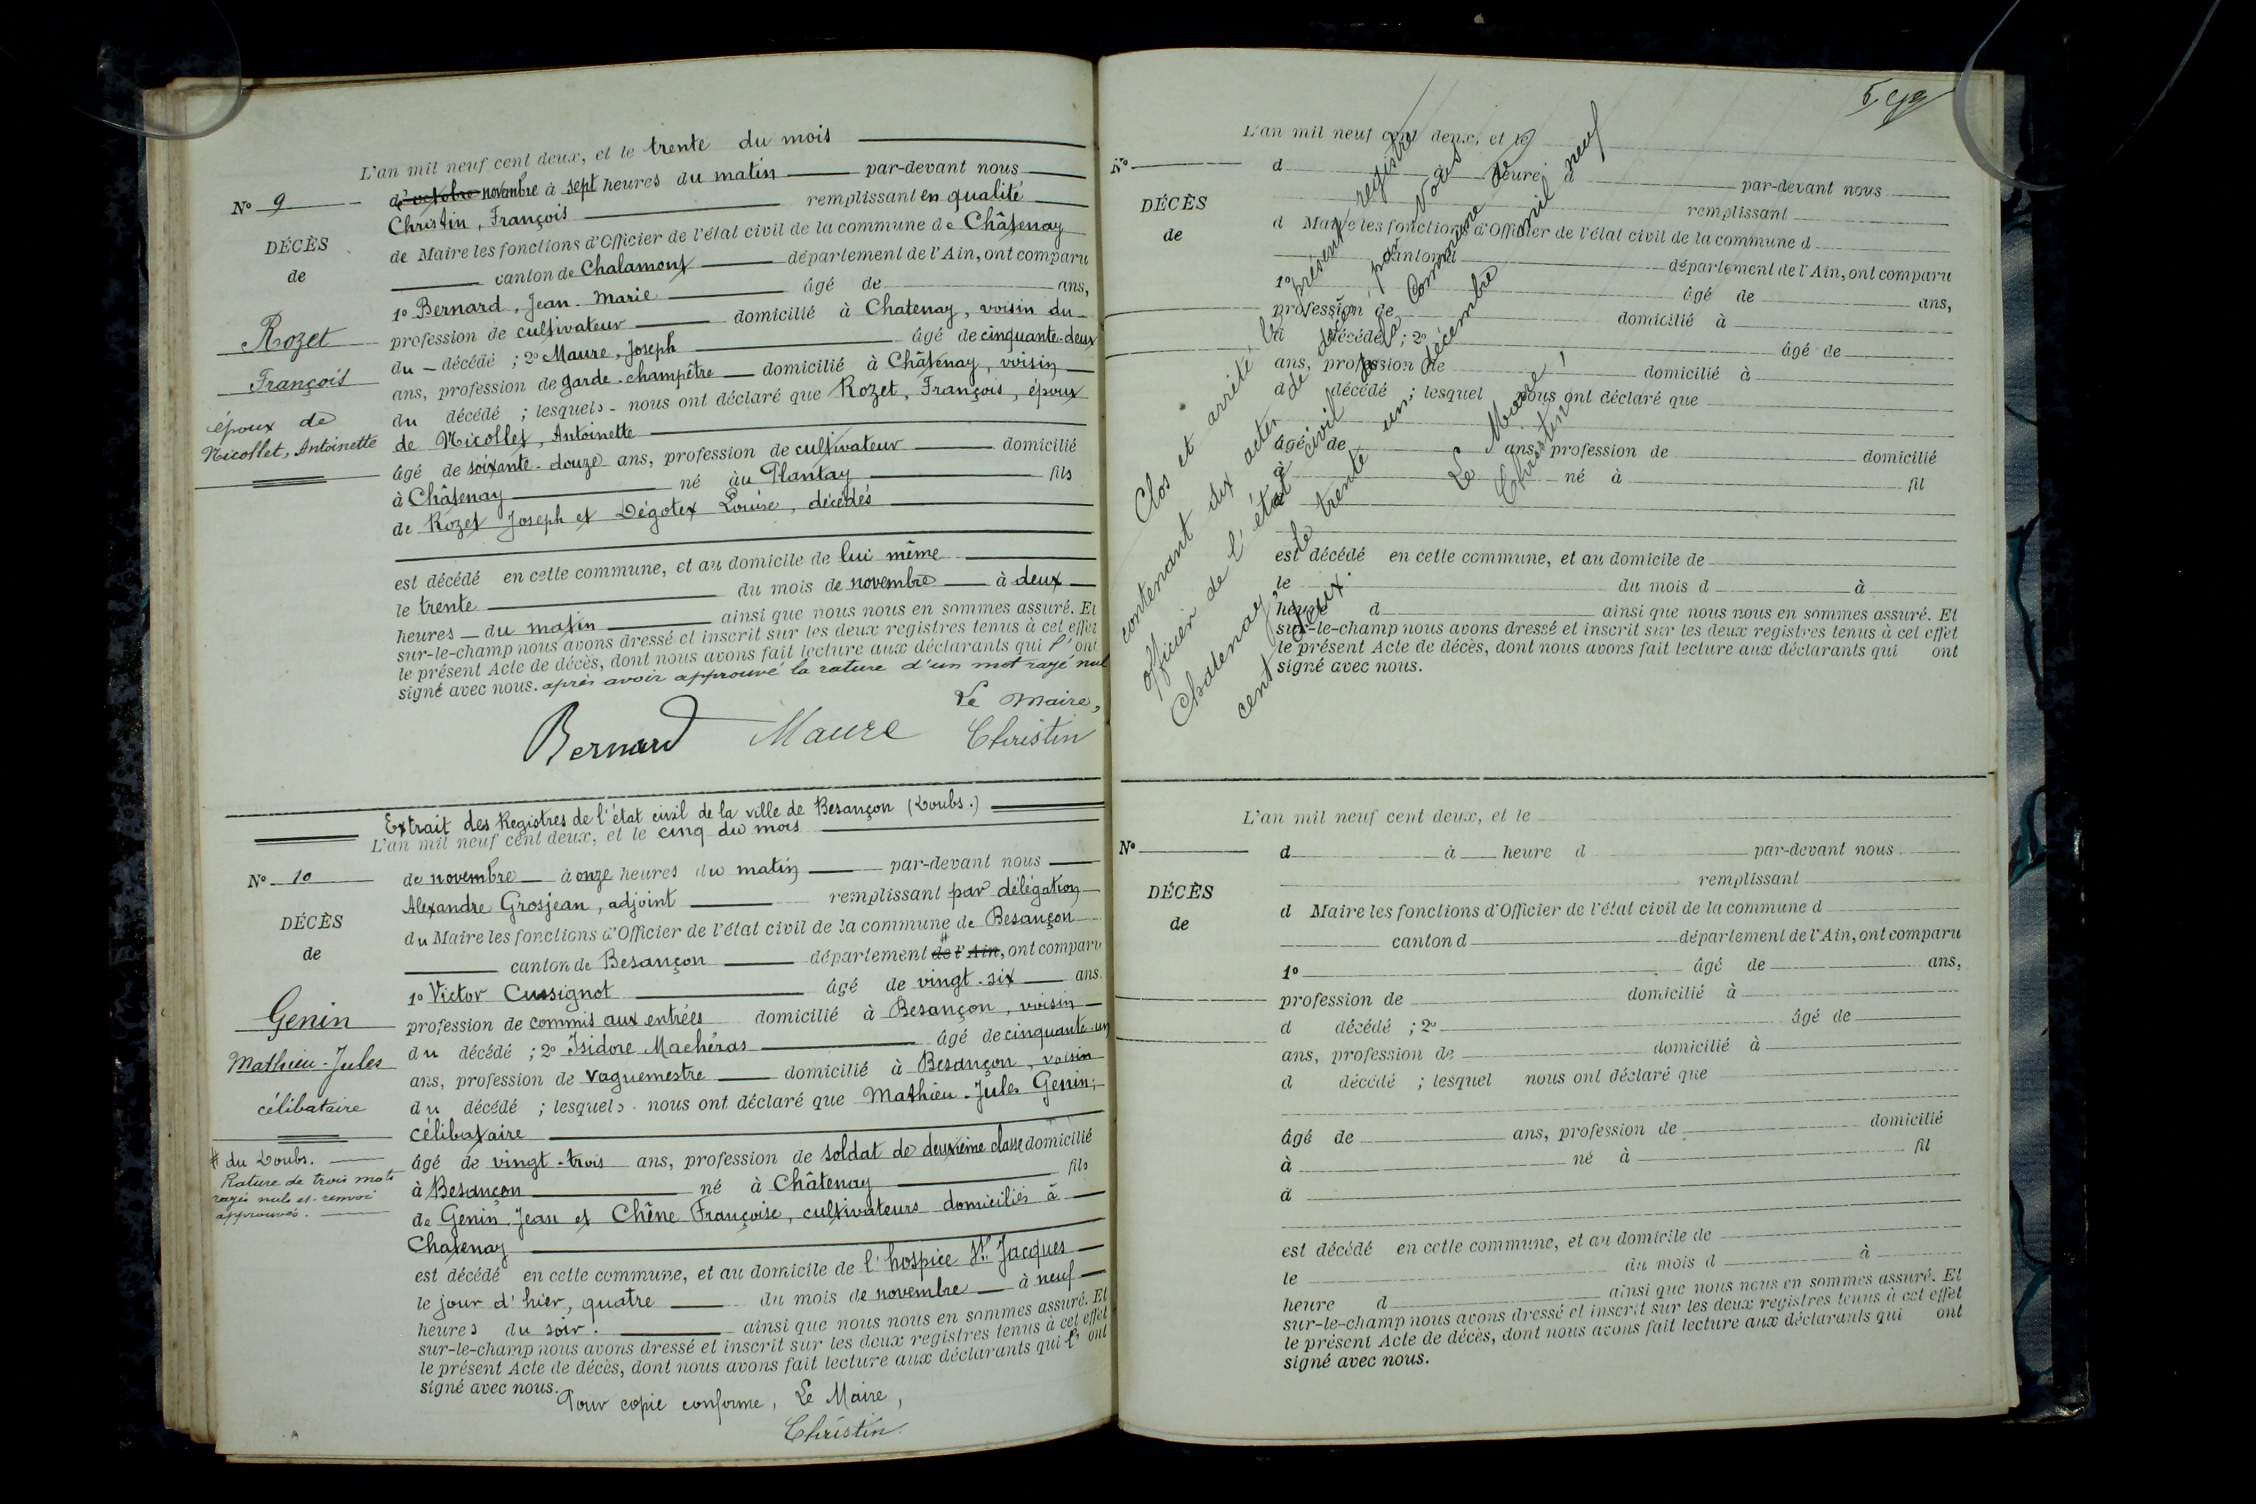 L'an mil neuf cent deux, et le trente du mois
d'octobre novembre à sept heures du matin par-devant nous
Nº 9
Christin, François remplissant en qualité
DÉCÈS
de Maire les fonctions d'Officier de l'état civil de la commune de Châtenay
de
canton de Chalamont département de l'Ain, ont comparu
1º Bernard, Jean-Marie âgé de ans,
Rozet
profession de cultivateur domicilié à Chatenay, voisin du
du décédé ; 2º Maure, Joseph âgé de cinquante-deux
François
ans, profession de garde-champêtre domicilié à Châtenay, voisin
époux de
du décédé ; lesquels nous ont déclaré que Rozet, François, époux
Nicollet, Antoinette
de Nicollet, Antoinette
âgé de soixante-douze ans, profession de cultivateur domicilié
à Châtenay né au Plantay fils
de Rozet Joseph et Dégotex Louise, décédés
est décédé en cette commune, et au domicile de lui même
le trente du mois de novembre à deux
heures du matin ainsi que nous nous en sommes assuré. Et
sur-le-champ nous avons dressé et inscrit sur les deux registres tenus à cet effet
le présent Acte de décès, dont nous avons fait lecture aux déclarants qui l'ont
signé avec nous. après avoir approuvé la rature d'un mot rayé nul
Le Maire,
Bernard Maure Christin
Extrait des Registres de l'état civil de la ville de Besançon (Doubs.)
L'an mil neuf cent deux, et le cinq du mois
Nº 10
de novembre à onze heures du matin par-devant nous
Alexandre Grosjean, adjoint remplissant par délégation
DÉCÈS
du Maire les fonctions d'Officier de l'état civil de la commune de Besançon
de
canton de Besançon département # de l'Ain, ont comparu
1º Victor Cussignot âgé de vingt-six ans.
Genin
profession de commis aux entrées domicilié à Besançon, voisin
du décédé ; 2º Isidore Machéras âgé de cinquante-un
Mathieu-Jules
ans, profession de vaguemestre domicilié à Besançon, voisin
célibataire
du décédé ; lesquels nous ont déclaré que Mathieu-Jules Genin,
célibataire
# du Doubs.
âgé de vingt-trois ans, profession de soldat de deuxième classe domicilié
Rature de trois mots
à Besançon né à Châtenay fils
rayés nuls et renvoi
de Genin Jean et Chêne Françoise, cultivateurs domiciliés à
approuvés.
Chatenay
est décédé en cette commune, et au domicile de l'hospice St Jacques
le jour d'hier, quatre du mois de novembre à neuf
heures du soir. ainsi que nous nous en sommes assuré. Et
sur-le-champ nous avons dressé et inscrit sur les deux registres tenus à cet effet
le présent Acte de décès, dont nous avons fait lecture aux déclarants qui l'ont
signé avec nous.
Pour copie conforme, Le Maire,
Christin
L'an mil neuf cent deux, et le
Nº
d à heure d par-devant nous
remplissant
DÉCÈS
d Maire les fonctions d'Officier de l'état civil de la commune d
de
canton d département de l'Ain, ont comparu
1º âgé de ans,
profession de domicilié à
d décédé ; 2º âgé de
ans, profession de domicilié à
d décédé ; lesquel nous ont déclaré que
âgé de ans, profession de domicilié
à né à fil
d
est décédé en cette commune, et au domicile de
le du mois d à
heure d ainsi que nous nous en sommes assuré. Et
sur-le-champ nous avons dressé et inscrit sur les deux registres tenus à cet effet
le présent Acte de décès, dont nous avons fait lecture aux déclarants qui ont
signé avec nous.
Clos et arrêté le présent registre
contenant dix actes de décès, par Nous
officier de l'état civil de la Commune de
Chatenay, le trente un décembre mil neuf
cent deux.
Le Maire,
Christin
L'an mil neuf cent deux, et le
Nº
d à heure d par-devant nous
remplissant
DÉCÈS
d Maire les fonctions d'Officier de l'état civil de la commune d
de
canton d département de l'Ain, ont comparu
1º âgé de ans,
profession de domicilié à
d décédé ; 2º âgé de
ans, profession de domicilié à
d décédé ; lesquel nous ont déclaré que
âgé de ans, profession de domicilié
à né à fil
d
est décédé en cette commune, et au domicile de
le du mois d à
heure d ainsi que nous nous en sommes assuré. Et
sur-le-champ nous avons dressé et inscrit sur les deux registres tenus à cet effet
le présent Acte de décès, dont nous avons fait lecture aux déclarants qui ont
signé avec nous.